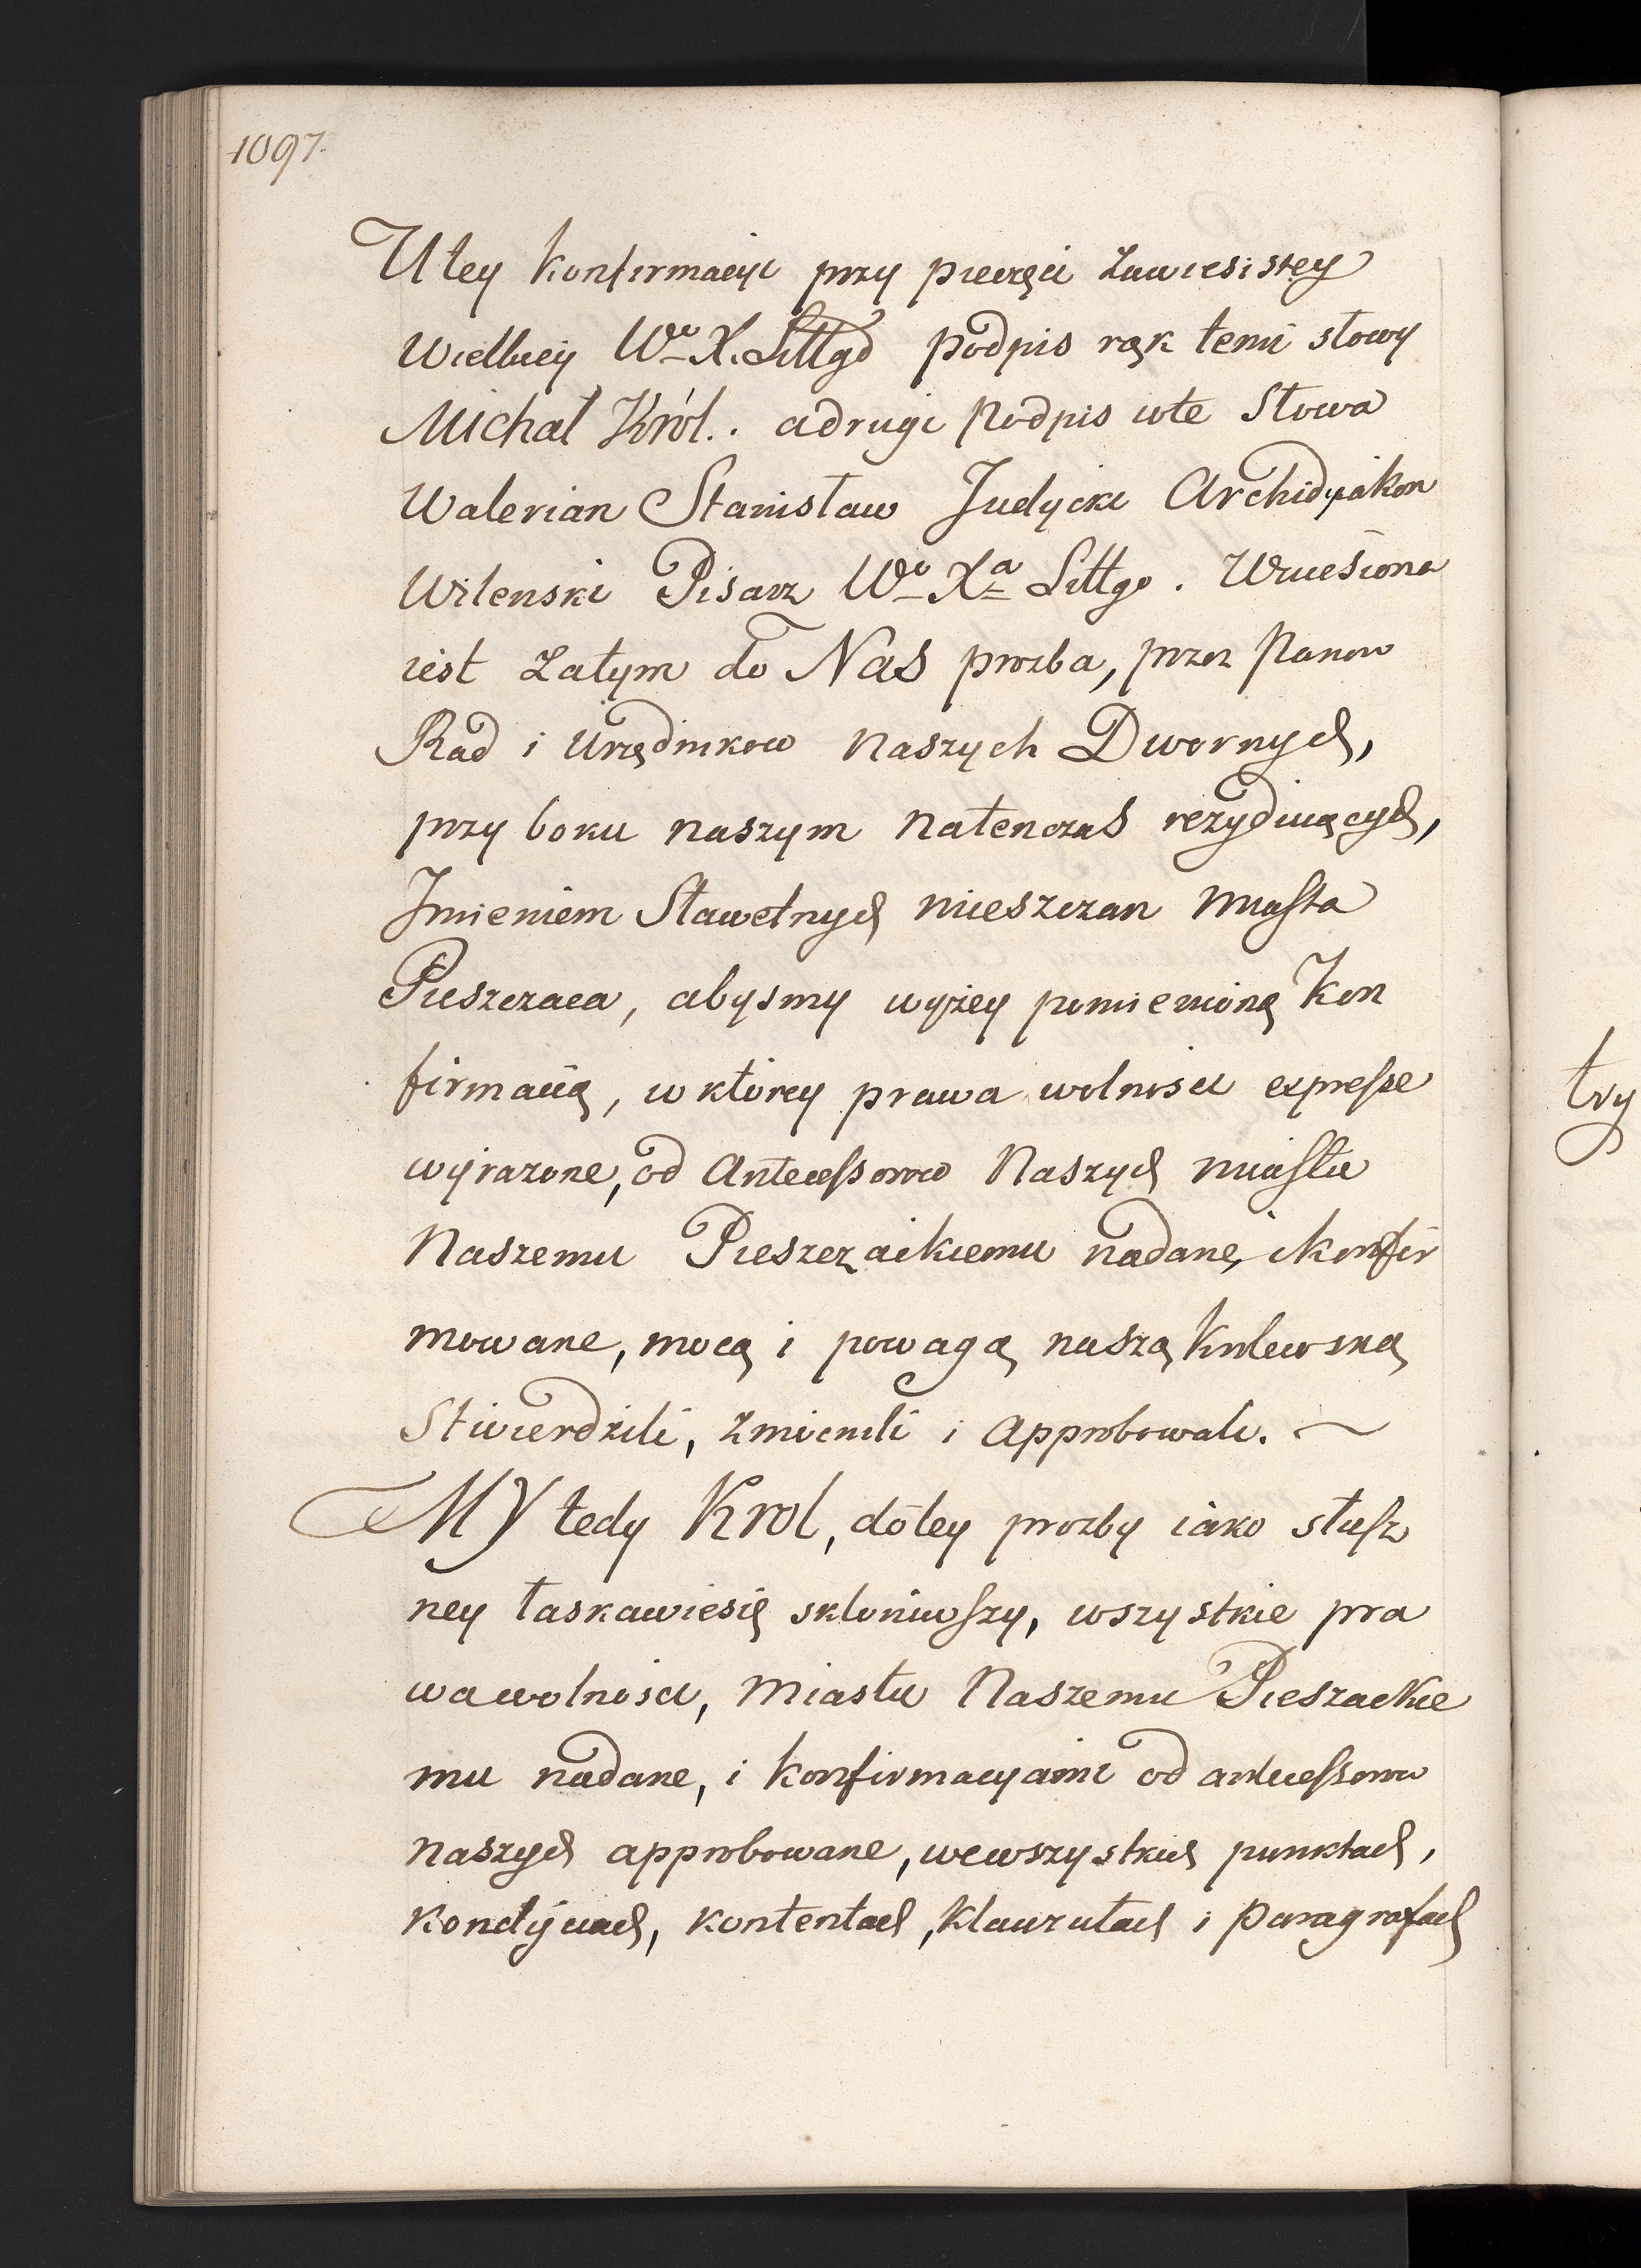 1097.
U tey konfirmacyi przy pieczęci zawiesistey
Wielkiey Wo X. Littgo podpis rąk temi słowy
Michał Król.. a drugi podpis w te słowa
Walerian Stanisław Judycki Archidyakon
Wilenski Pisarz Wo Xa Littgo. Wniesiona
iest zatym do Nas prozba, przez Panow
Rad i Urzędnikow Naszych Dwornych,
przy boku naszym natenczas rezyduiących,
Imieniem Sławetnych mieszczan miasta
Pieszczaca, abysmy wyżey pomienioną Kon
firmacią, w ktorey prawa wolnosci expresse
wyrazone, od Antecessorow Naszych miastu
Naszemu Pieszczackiemu nadane, i konfir
mowane, mocą i powagą naszą Krolewską
stwierdzili, zmocnili i approbowali.
MY tedy Krol, do tey prozby iako słusz
ney łaskawie się skłoniwszy, wszystkie pra
wa wolnosci, Miastu Naszemu Pieszackie
mu nadane, i konfirmacyami od antecessorow
naszych approbowane, we wszystkich punktach,
kondycyach, kontentach, klauzułach i paragrafach
try